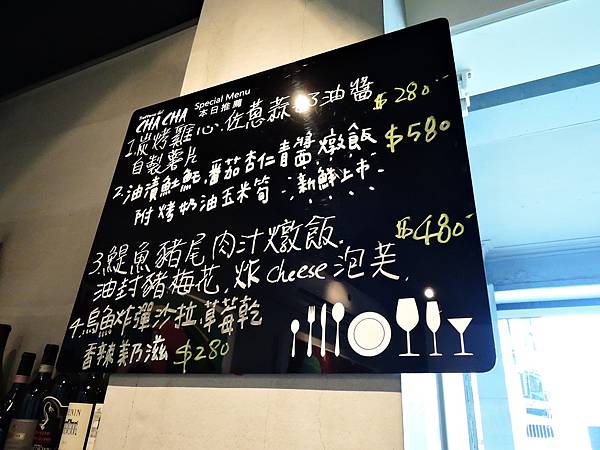 CHA CHA
Special Menu
本日推薦
1.炭烤雞心.佐蔥蒜奶油醬 $280-
自製薯片
2.油漬魷魚.番茄杏仁青醬燉飯 $580
附烤奶油玉米筍 新鮮上市
3.鯷魚豬尾肉汁燉飯. $480-
油封豬梅花.炸cheese泡芙.
4.烏魚炸彈沙拉.草莓乾
香辣美乃滋 $280